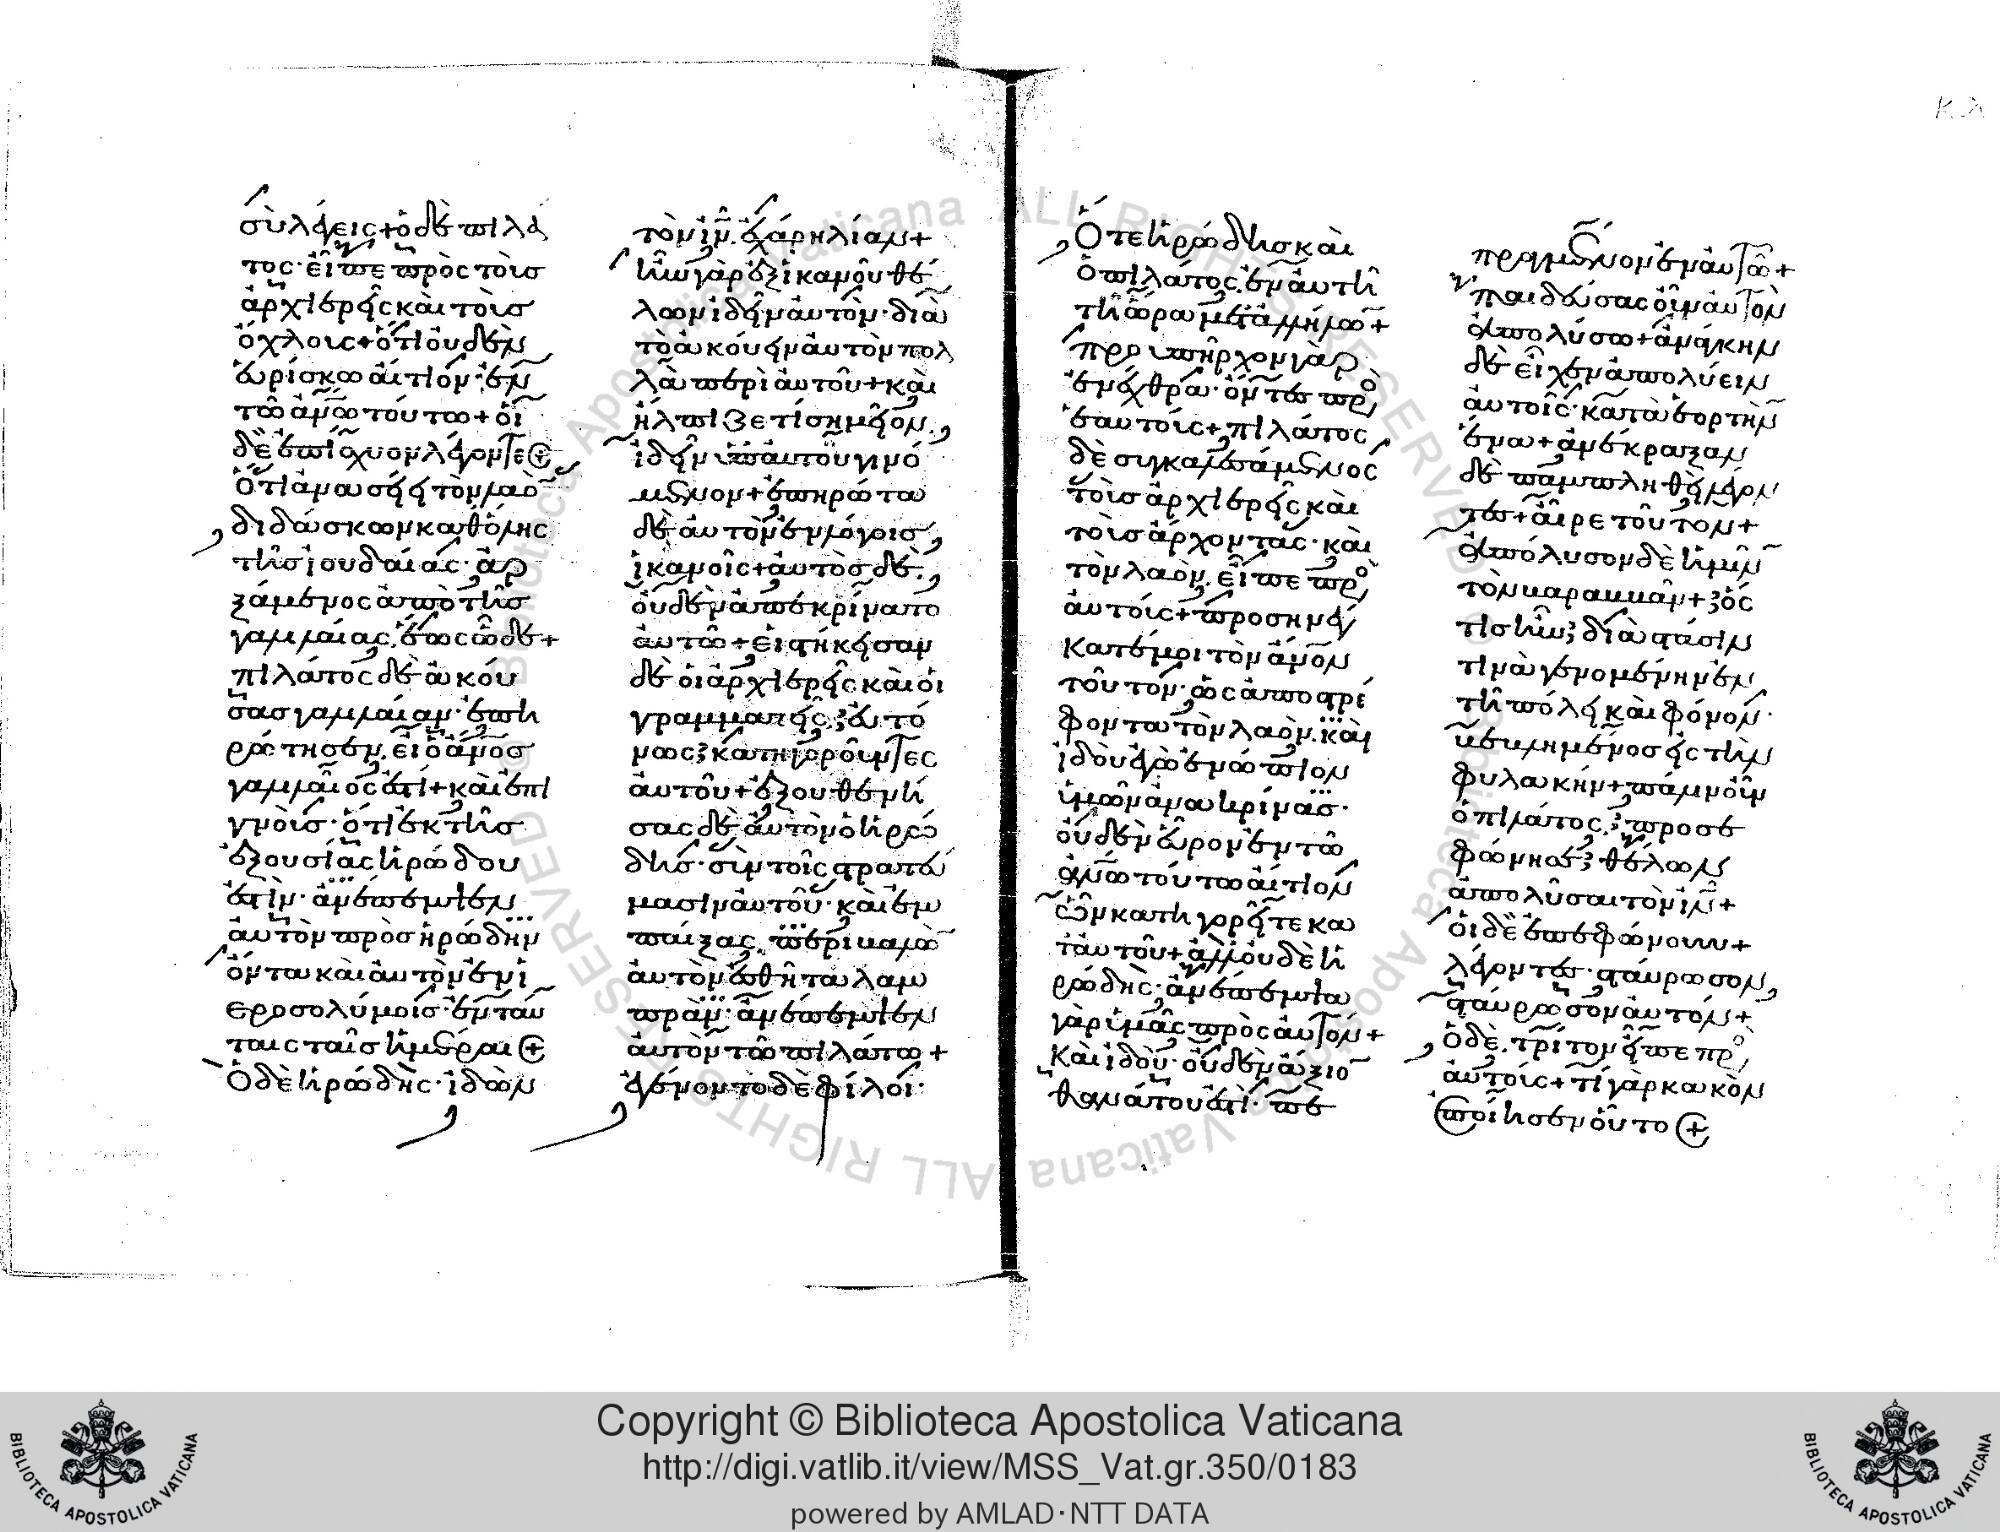 σὺ λέγεις + ὁ δὲ πιλά
τος· εἶπε πρὸς τοὺς
ἀρχιερεῖς καὶ τοὺς
ὄχλους + ὅτι οὐδὲν
εὑρίσκω αἴτιον· ἐν
τῶ ἀνῶ τούτω + οἱ
δὲ ἐπίσχυον λέγοντες +
ὅτι ἀνασείει τὸν λαὸν
διδάσκων καθ' ὅλης
τῆς ἰουδαίας· ἀρ
ξάμενος ἀπὸ τῆς
γαλιλαίας, ἕως ὧδε +
πιλάτος δὲ ἀκού
σας γαλιλαίαν· ἐπη
ρώτησεν, εἰ ὁ ἄνος
γαλιλαῖός ἐστι + καὶ ἐπι
γνοὺς· ὅτι ἐκ τῆς
ἐξουσίας ἡρώδου
ἐστὶν· ἀνέπεμψεν
αὐτὸν πρὸς ἡρώδην
ὄντα καὶ αὐτὸν ἐν ἱ
εροσολύμοις· ἐν ταύ
ταις ταῖς ἡμέραις +
Ὁ δὲ ἡρώδης· ἰδὼν
τὸν ἰν, ἐχάρη λίαν +
ἦν γὰρ ἐξ ἱκανοῦ θέ
λων ἰδεῖν αὐτὸν· διὰ
τὸ ἀκούειν αὐτὸν πολ
λὰ περὶ αὐτοῦ + καὶ
ἤλπιζέ τι σημεῖον,
ἰδεῖν ὑπ' αὐτοῦ γινό
μενον + ἐπηρώτα
δὲ αὐτὸν ἐν λόγοις
ἱκανοῖς + αὐτὸς δὲ,
οὐδὲν ἀπεκρίνατο
αὐτῶ + εἱστήκεισαν
δὲ οἱ ἀρχιερεῖς καὶ οἱ
γραμματεῖς, εὐτό
νως κατηγοροῦντες
αὐτοῦ + ἐξουθενή
σας δὲ αὐτὸν ὁ ἡρώ
δης· σὺν τοῖς στρατεύ
μασιν αὐτοῦ· καὶ ἐμ
παίξας, περιβαλὼν
αὐτὸν ἐσθῆτα λαμ
πρὰν· ἀνέπεμψεν
αὐτὸν τῶ πιλάτω +
ἐγένοντο δὲ φίλοι·
Ὅ τε ἡρώδης καὶ
ὁ πιλάτος, ἐν αὐτῆ
τῆ ὥρα μετ' ἀλλήλων +
προυπῆρχον γὰρ
ἐν ἔχθρα· ὄντες πρὸς
ἑαυτούς + πιλάτος
δὲ συγκαλεσάμενος
τοὺς ἀρχιερεῖς καὶ
τοὺς ἄρχοντας· καὶ
τὸν λαὸν, εἶπε πρὸς
αὐτούς + προσηνέγ
κατέ μοι τὸν ἄνον
τοῦτον· ὡς ἀποστρέ
φοντα τὸν λαὸν, καὶ
ἰδοὺ ἐγὼ ἐνώπιον
ὑμῶν ἀνακρίνας·
οὐδὲν εὗρον ἐν τῶ
ἀνω τούτω αἴτιον
ὧν κατηγορεῖτε κα
τ' αὐτοῦ + ἀλλ' οὐδὲ ἡ
ρώδης· ἀνέπεμψα
γὰρ ὑμᾶς πρὸς αὐτόν +
καὶ ἰδοὺ· οὐδὲν ἄξιον
θανάτου ἐστὶ· πε
πραγμένον ἐν αὐτῶ +
παιδεύσας οὖν αὐτὸν
ἀπολύσω + ἀνάγκην
δὲ εἶχεν ἀπολύειν
αὐτοῖς· κατὰ ἑορτὴν
ἕνα + ἀνέκραξαν
δὲ παμπληθεὶ λέγον
τες + αἶρε τοῦτον +
ἀπόλυσον δὲ ἡμῖν
τὸν βαραββᾶν + ὅς
τις ἦν, διὰ στάσιν
τινὰ γενομένην ἐν
τῆ πόλει καὶ φόνον·
βεβλημένος εἰς τὴν
φυλακήν + πάλιν οὖν
ὁ πιλάτος, προσε
φώνησε, θέλων
ἀπολῦσαι τὸν ἰν +
οἱ δὲ ἐπεφώνουν +
λέγοντες· σταύρωσον,
σταύρωσον αὐτόν +
ὁ δὲ, τρίτον εἶπε πρὸς
αὐτούς + τί γὰρ κακὸν
ἐποίησεν οὗτος +
Copyright © Biblioteca Apostolica Vaticana
http://digi.vatlib.it/view/MSS_Vat.gr.350/0183
powered by AMLAD·NTT DATA
BIBLIOTECA APOSTOLICA VATICANA
BIBLIOTECA APOSTOLICA VATICANA